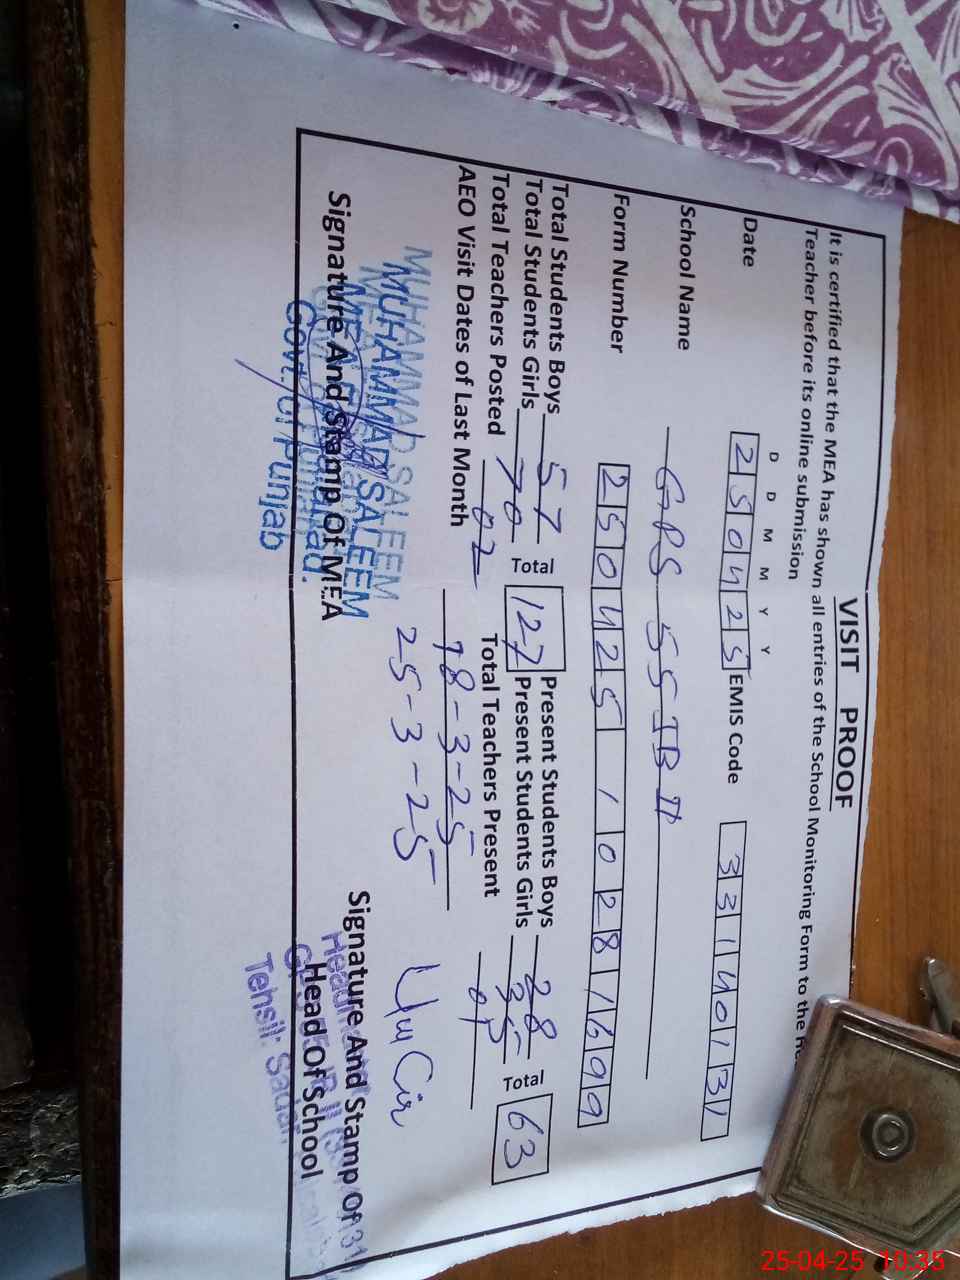 VISIT PROOF
It is certified that the MEA has shown all entries of the School Monitoring Form to the
Teacher before its online submission
D D M M Y Y
Date 250425 EMIS Code 33140131
School Name GPS 55 JB II
Form Number 250425 1 028 1699
Total Students Boys 57 Total 127 Present Students Boys 28 Total 63
Total Students Girls 70 Present Students Girls 35
Total Teachers Posted 02 Total Teachers Present 01
AEO Visit Dates of Last Month 18-3-25
25-3-25
MUHAMMAD SALEEM
MUHAMMAD SALEEM
Signature And Stamp Of MEA
Govt. of Punjab
Signature And Stamp Of
Head Of School
Tehsil: Sadar
25-04-25 10:35